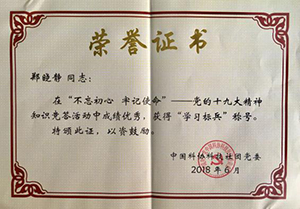 荣誉证书
郑晓静 同志：
在“不忘初心 牢记使命”——党的十九大精神
知识竞答活动中成绩优秀，获得“学习标兵”称号。
特颁此证，以资鼓励。
中国科协科技社团党委
2018 年 6 月